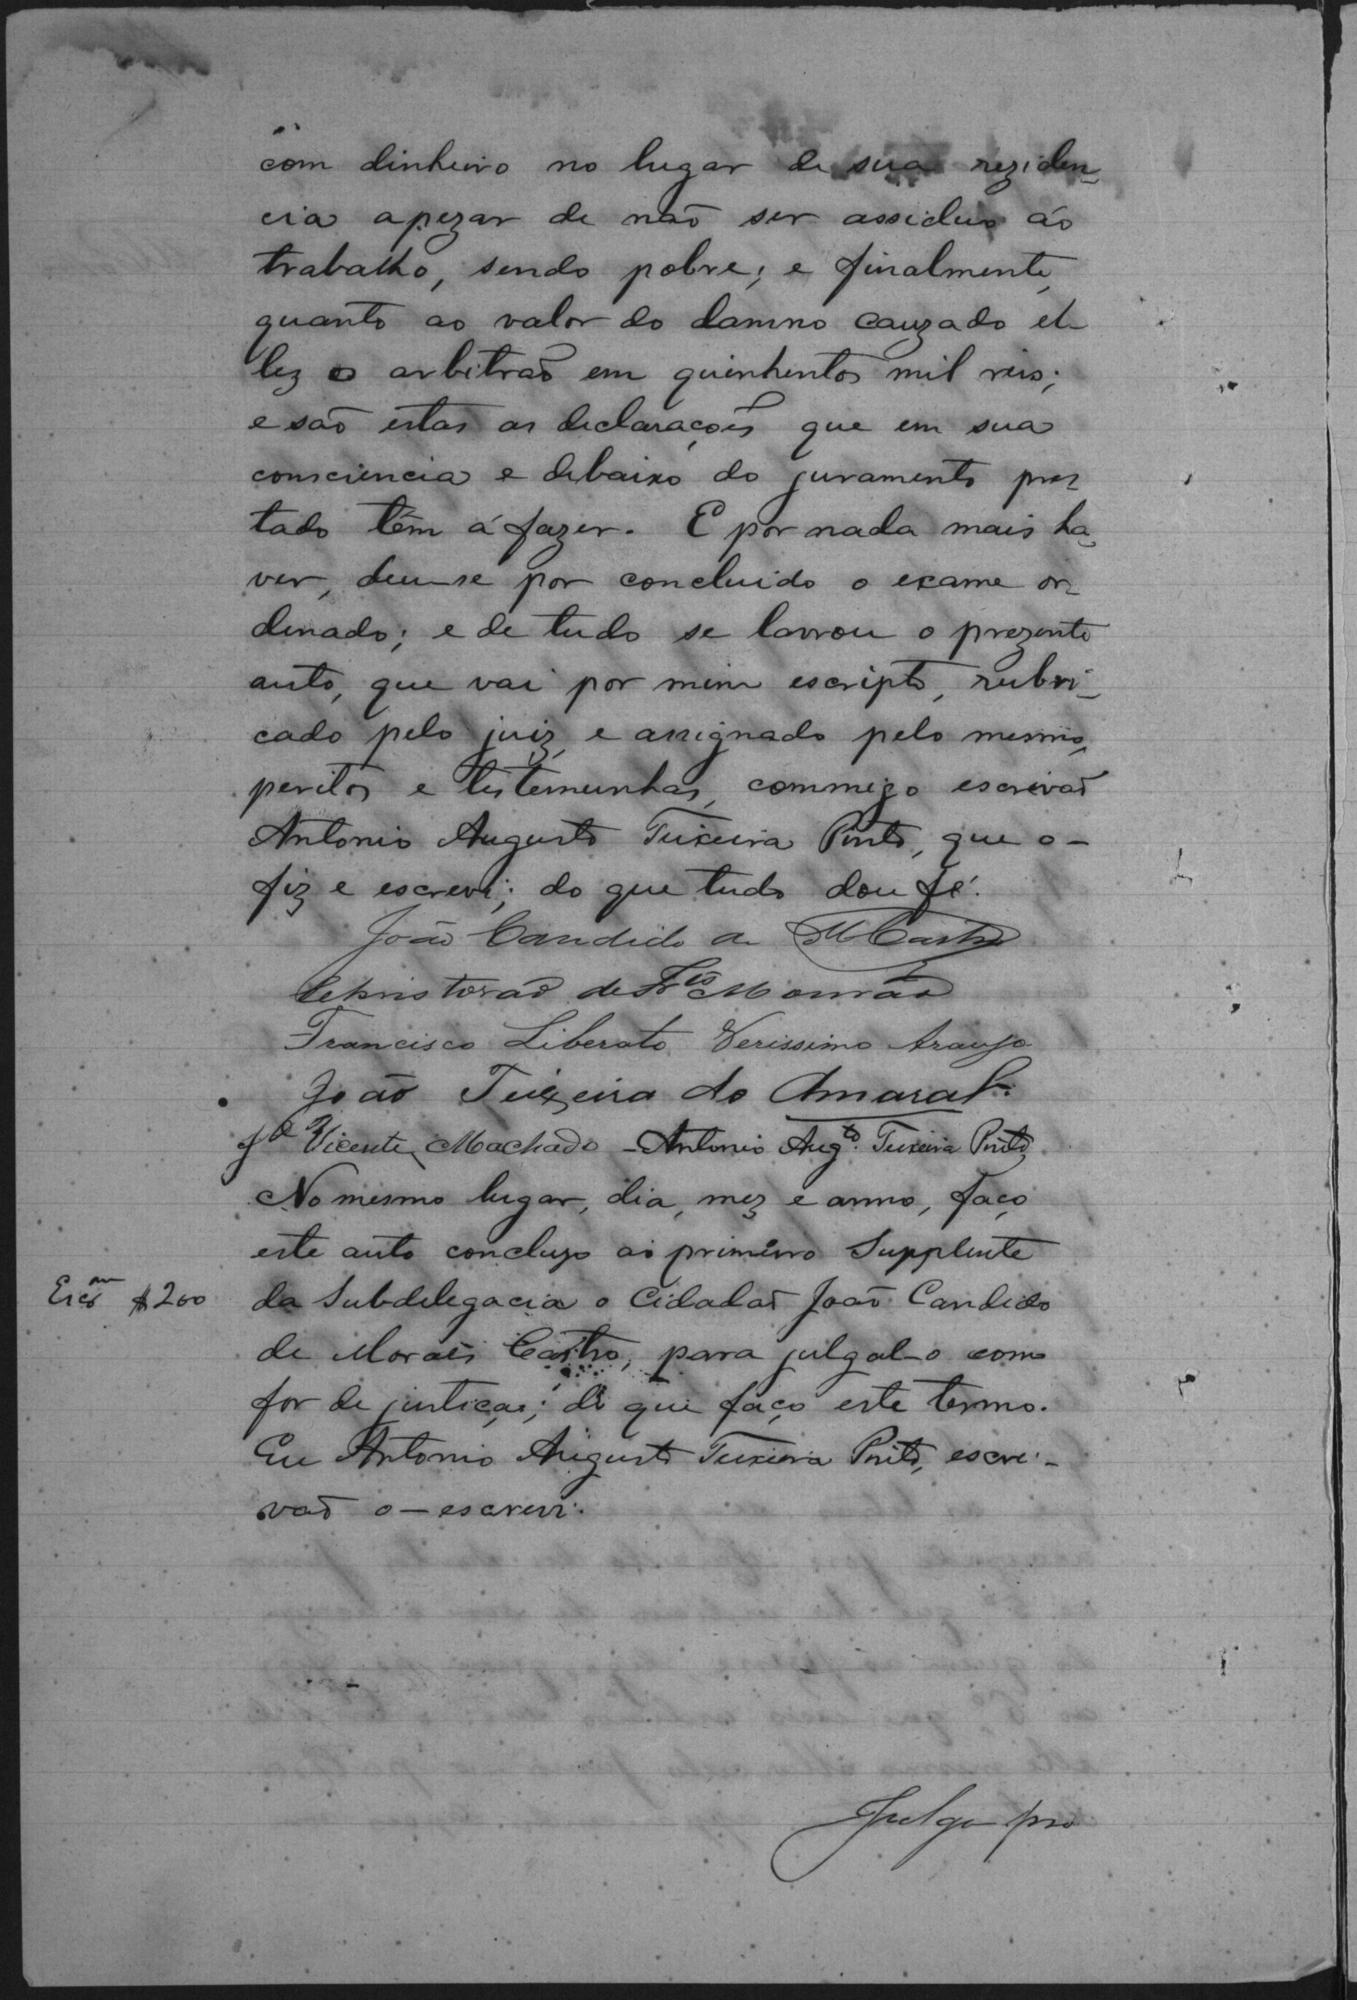 com dinheiro no lugar de sua reziden-
cia apezar de não ser assiduo áo
trabalho, sendo pobre; e finalmente,
quanto ao valor do damno cauzado el-
lez o arbitrão em quinhentos mil reis;
e são estas as declarações que em sua
consciencia e debaixo do juramento pres-
tado têm á fazer. E por nada mais ha-
ver, deu-se por concluido o exame or-
denado; e de tudo se lavrou o prezente
auto, que vai por mim escripto, rubri-
cado pelo juiz, e assignado pelo mesmo,
peritos e testemunhas, commigo escrivão
Antonio Augusto Teixeira Pinto, que o-
fiz e escrevi; do que tudo dou fé.
João Candido de M Castro
Christovão de Mourão
Francisco Liberato Verissimo Araujo
João Teixeira do Amaral.
Je Vicente Machado - Antonio Augto. Teixeira Pinto
No mesmo lugar, dia, mez e anno, faço
este auto concluzo ao primeiro Supplente
da Subdelegacia o Cidadão João Candido
$200
de Moraes Castro, para julgal-o como
for de justiça; do que faço este termo.
Eu Antonio Augusto Teixeira Pinto, escri-
vão o-escrevi.
Julgo pro